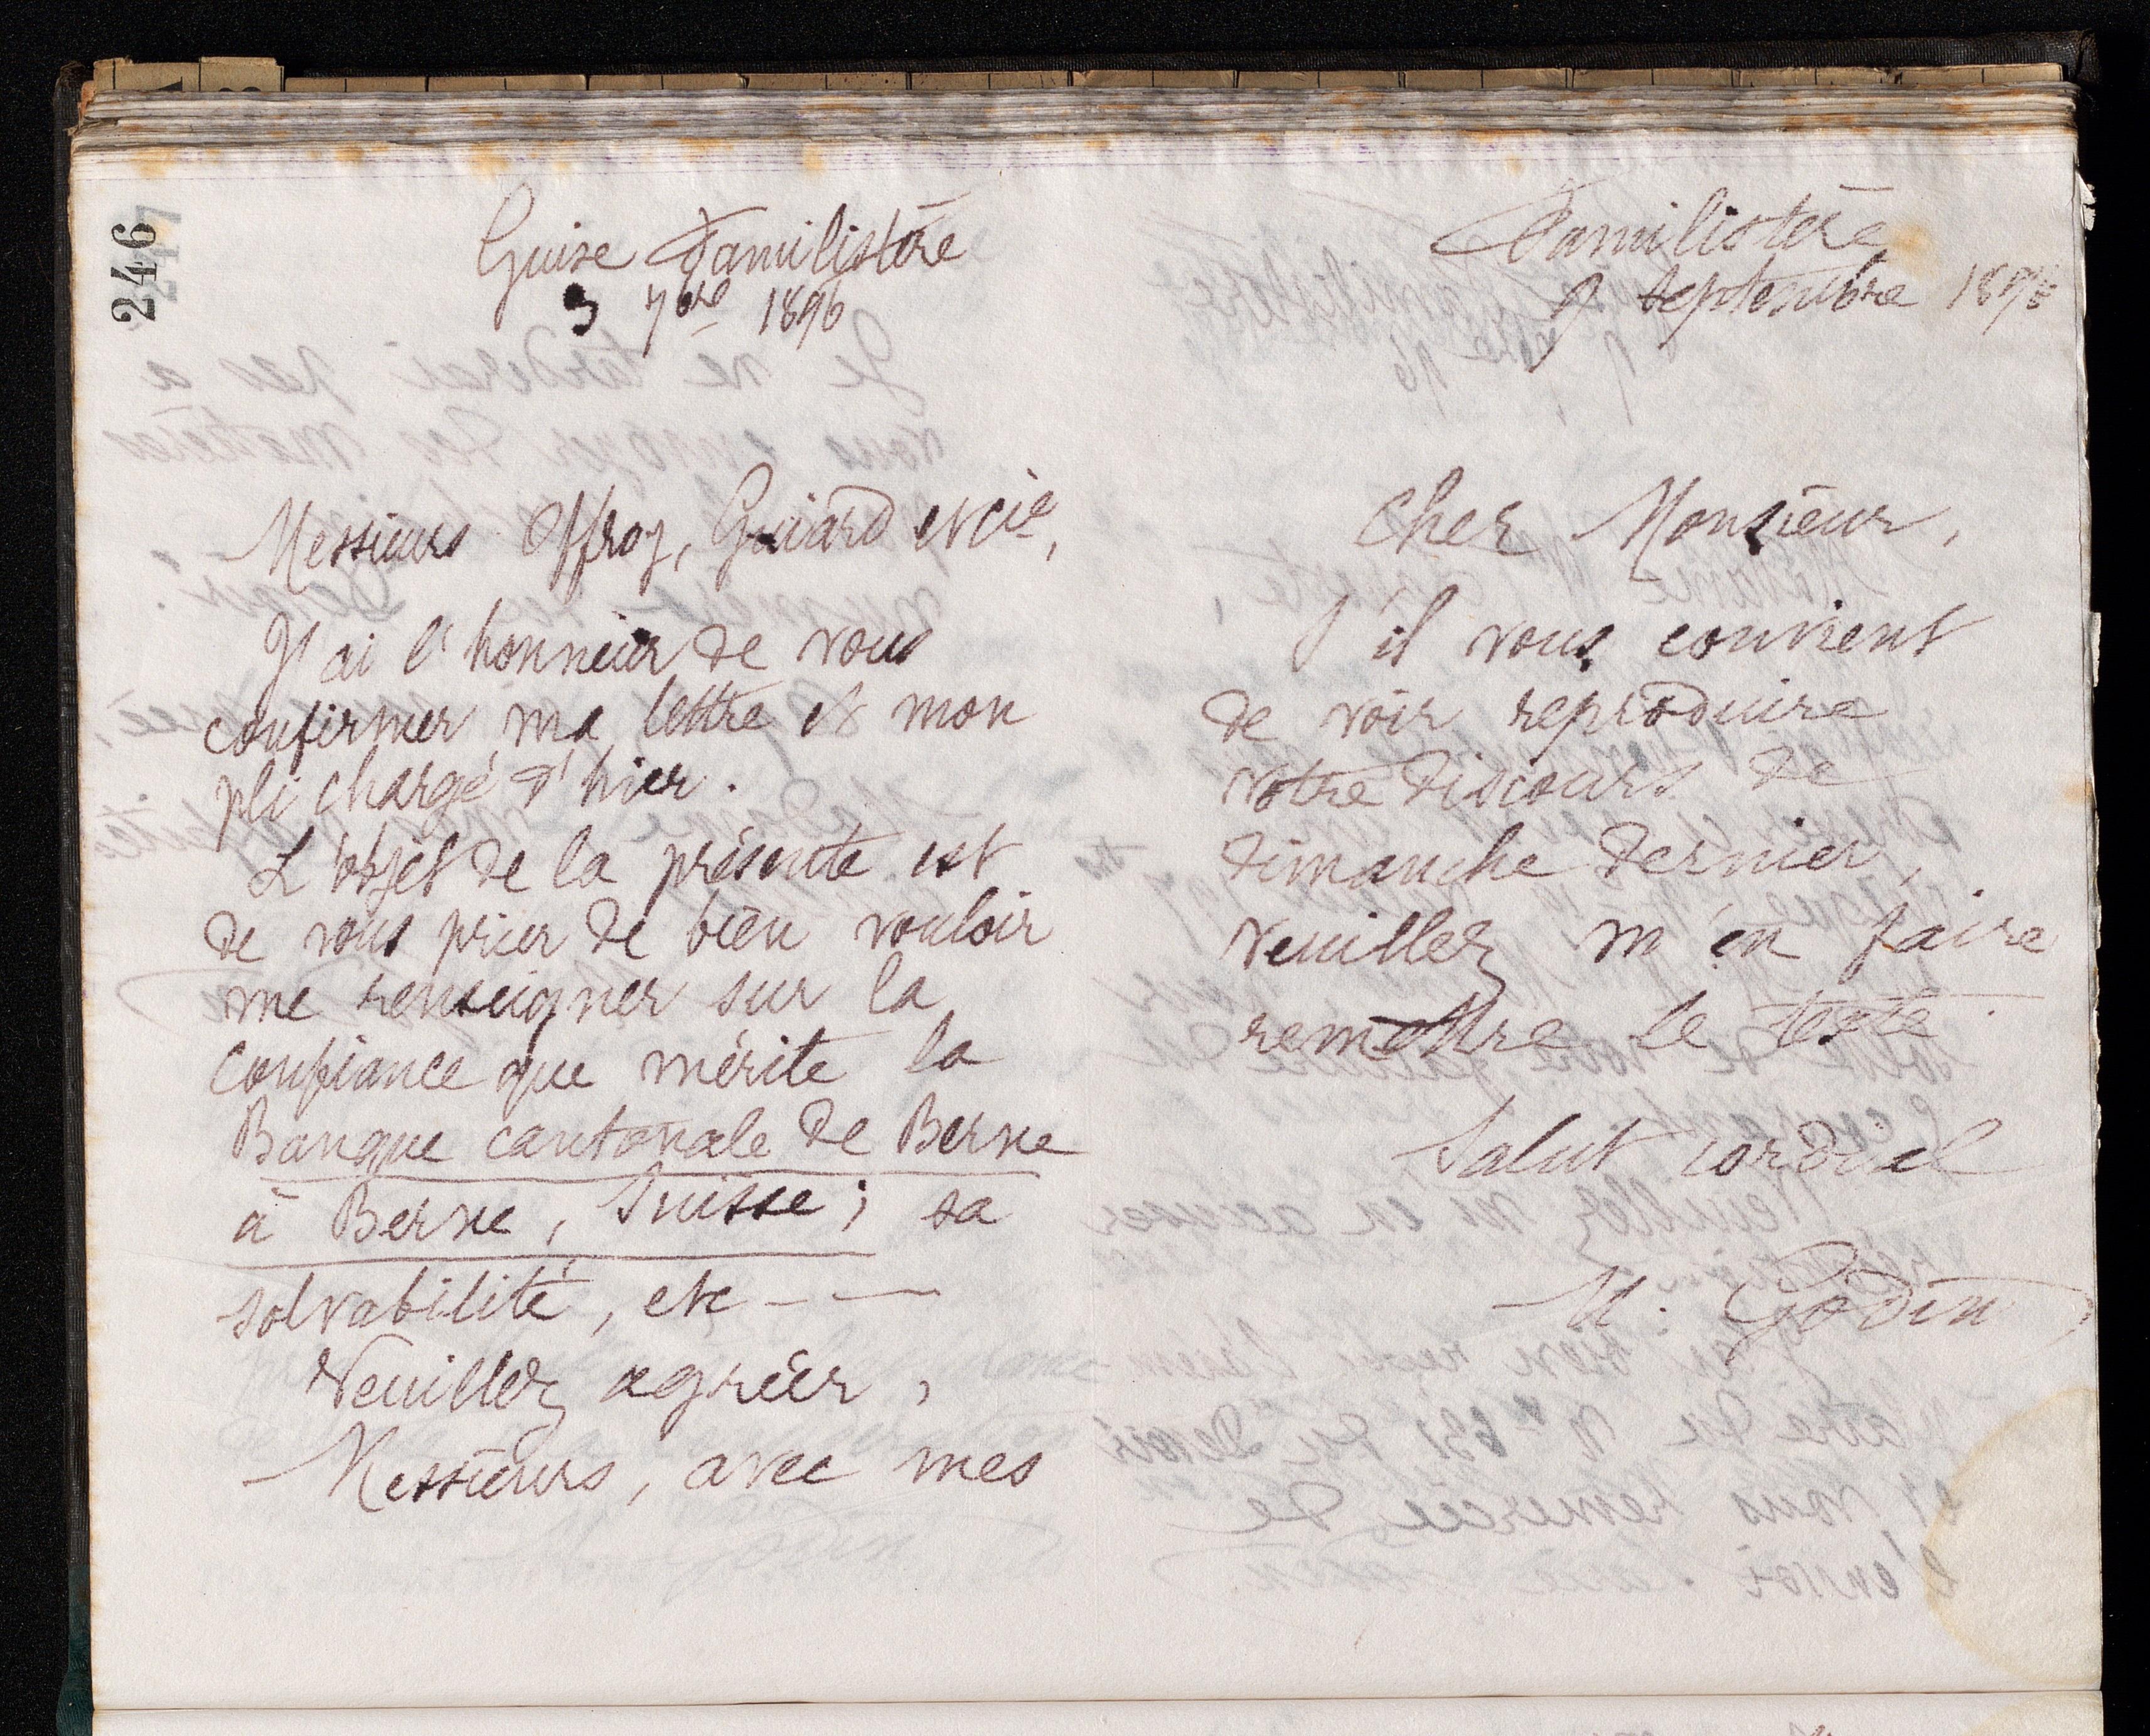 246
Guise Familistère
3 7bre 1896
Messieurs Offroy, Guiard et Cie,
J'ai l'honneur de vous
confirmer ma lettre et mon
pli chargé d'hier.
L'objet de la présente est
de vous prier de bien vouloir
me renseigner sur la
confiance que mérite la
Banque cantonale de Berne
à Berne, Suisse; sa
solvabilité, etc - —
Veuillez agréer,
Messieurs, avec mes
Familistère
9 septembre 1896
Cher Monsieur,
S'il vous convient
de voir reproduire
votre discours de
dimanche dernier,
veuillez m'en faire
remettre le texte.
Salut cordial
M. Godin